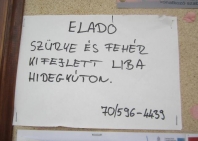 ELADÓ
SZÜRKE ÉS FEHÉR
KIFEJLETT LIBA
HIDEGKÚTON.
70/596-4439